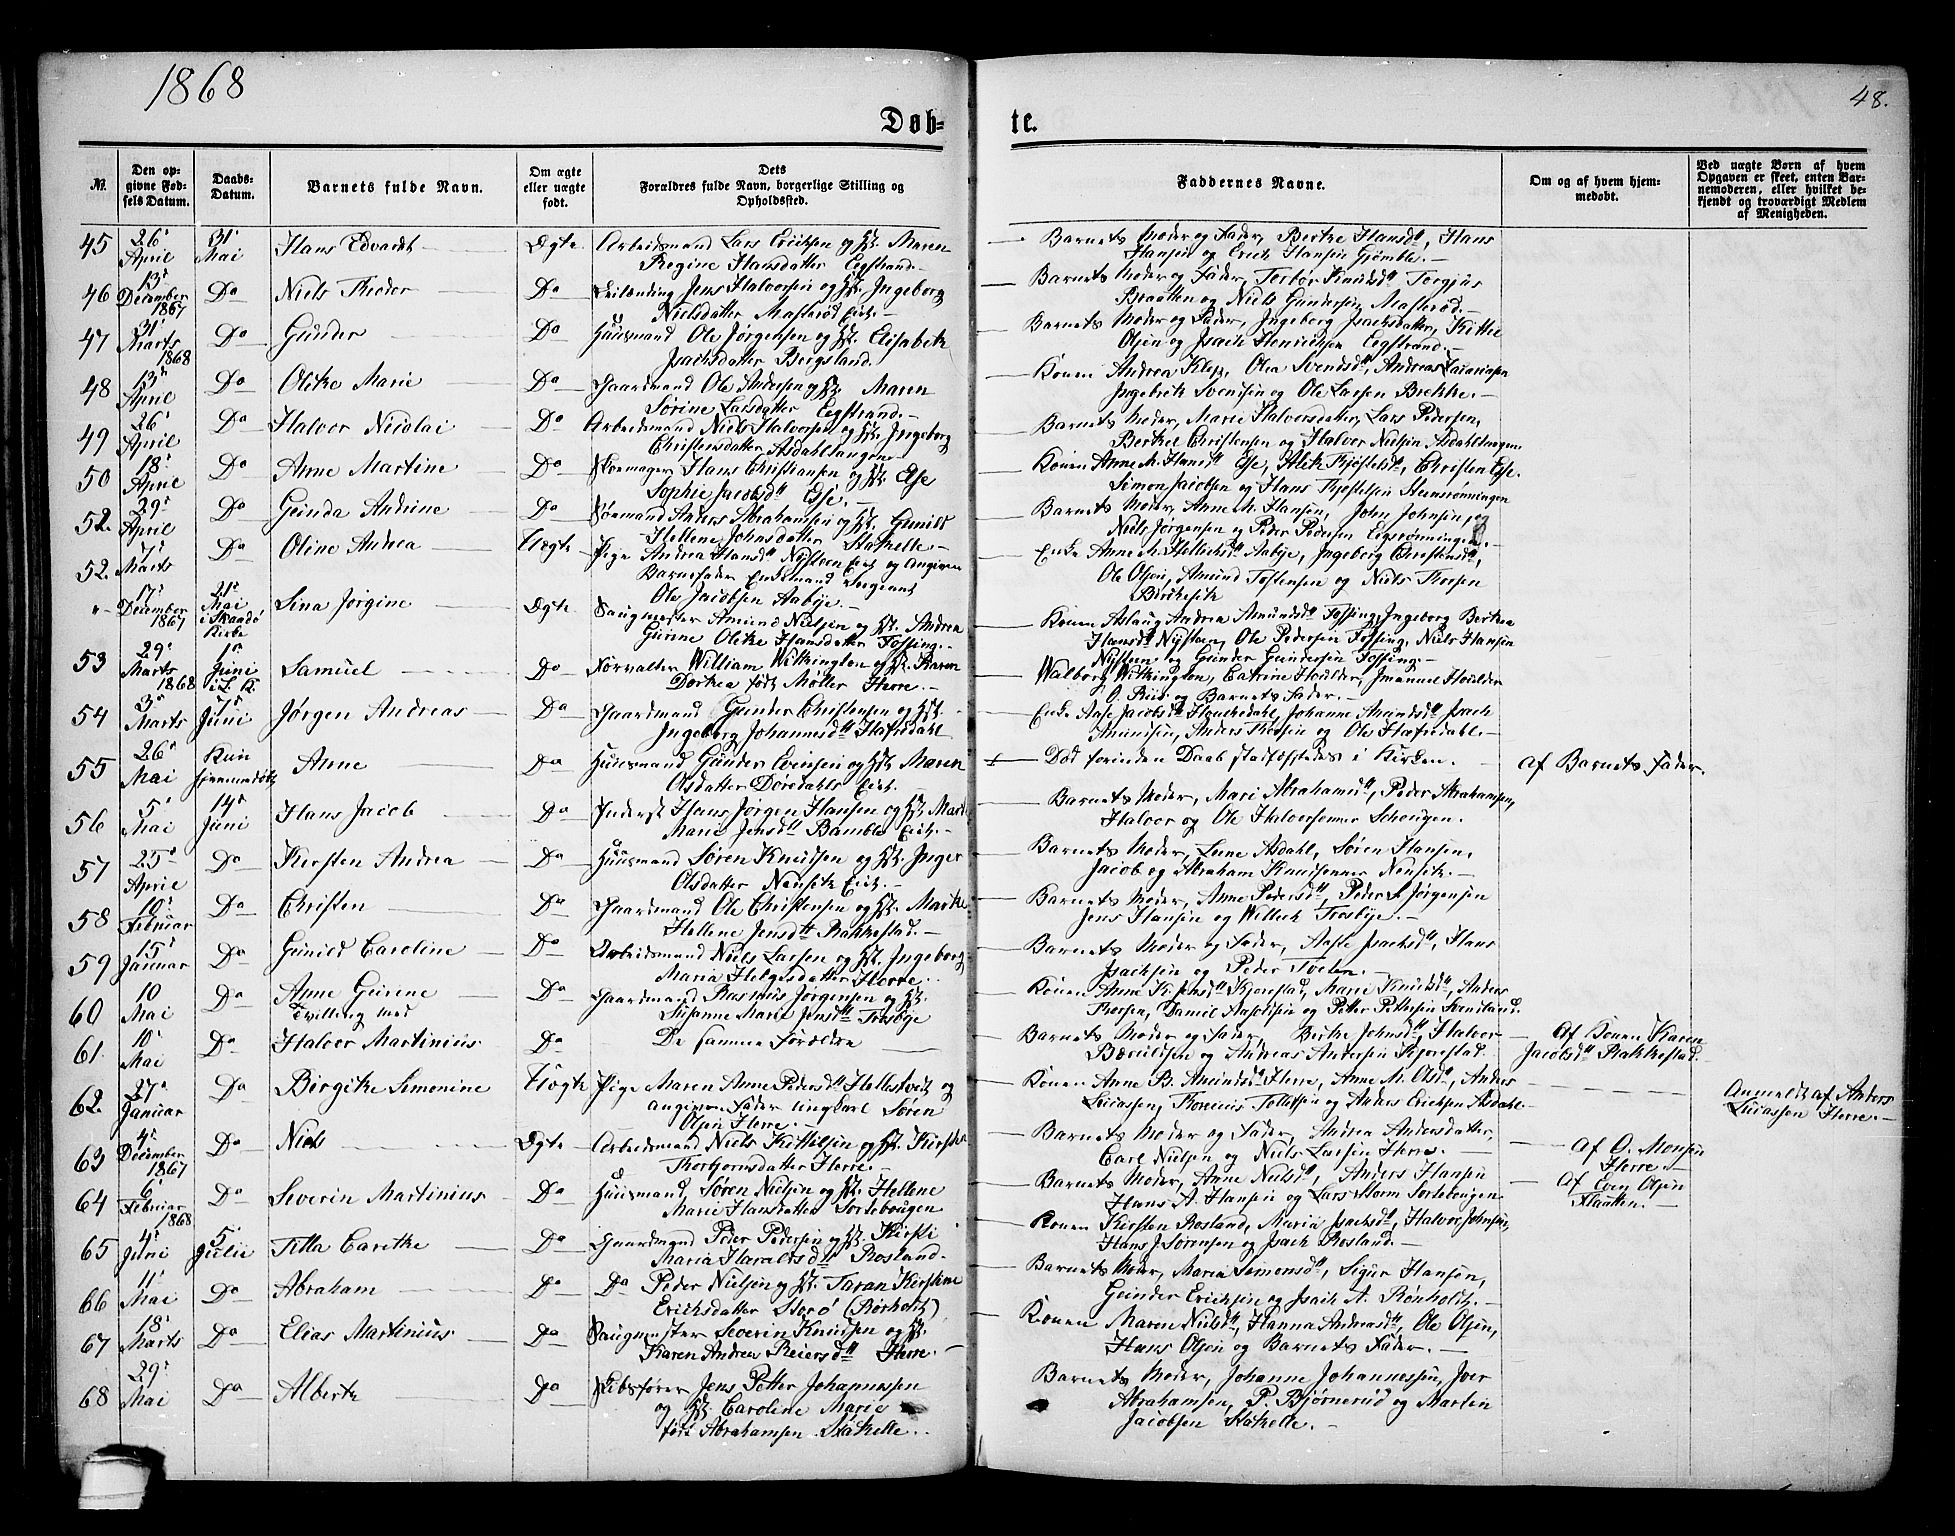 1868
48.
Døb=
te.
№.
Den op=
givne Fød=
sels Datum.
Daabs=
Datum.
Barnets fulde Navn.
Om ægte
eller uægte
født.
Dets
Forældres fulde Navn, borgerlige Stilling og
Opholdssted.
Faddernes Navne.
Om og af hvem hjem=
medøbt.
Ved uægte Børn af hvem
Opgaven er skeet, enten Bar=
nemoderen, eller hvilket be=
kjendt og troværdigt Medlem
af Menigheden.
45 26 April 31 Mai Hans Edvardt Ægte Arbeidsmand Lars Ericksen og H. Maren
Regine Hansdatter Eegstrand.
Barnets Moder og Fader, Berthe Hansd, Hans
Hansen og Erick Hansen Gjømle.
46 13 December 1867 Do Niels Theodor Do Leilænding Jens Halvorsen og H. Ingeborg
Nielsdatter Masterød Eid.
Barnets Moder og Fader, Torbør Knudsd Torgjus
Braatten og Niels Gundersen Masterød.
47 31 Marts 1868 Do Gunder Do Huusmand Ole Jørgensen og H. Elisabeth
Isachsdatter Bergsland.
Barnets Moder og Fader, Ingeborg Isachsdatter, Kittil
Olsen og Isach Henricksen Eegstrand.
48 13 April Do Olithe Marie Do Gaardmand Ole Andersen og H. Maren
Sørine Larsdatter Eegstrand.
Konen Andrea Klep, Olea Svendsd, Andreas Zacariasen
Ingebrik Svensen og Ole Larsen Brekke.
49 26 April Do Halvor Nicolai Do Arbeidsmand Niels Halvorsen og H. Ingeborg
Christensdatter Asdahltangen
Barnets Moder, Marie Halvorsdatter, Lars Pedersen,
Berthel Christensen og Halvor Nielsen Asdahltangen
50 18 April Do Anne Martine Do Skomager Hans Christiansen og H. Else
Sophie Jacobsd
Konen Anne M. Hansd
Simon Jacobsen og Hans Kjøstelsen
52. 29 April Do Gunda Andrine Do Sømand Anders Abrahamsen og H. Gunild
Hellene Johnsdatter Stathelle.
Barnets Moder, Anne M. Hansen, John Johnsen, og
Niels Jørgensen og Peder Pedersen
52. 7 Marts Do Oline Andrea Uægte Pige Andrea Hansd Nysteen Eid og angiven
Barnefader Enkemand Sergeant
Ole Jacobsen Aabye.
Enke Anne M. Aabye, Ingeborg Christensd,
Ole Olsen, Amund Tostensen og Niels Thorsen
Birkevik
" 17 December 1867 21 Mai i Skaadø Kirke Lina Jørgine Ægte Saugmester Amund Nielsen og H. Andrea
Gurine Olithe Hansdatter Fossing.
Konen Aslaug Andrea Amundsd Fossing, Ingeborg Berthea
Hansd Nysteen, Ole Pedersen Fossing, Niels Hansen
Nysteen og Gunder Gundersen Fossing.
53 29 Marts 1868 1 Juni i L. K. Samuel Do Forvalter William Withington og H. Karen
Dorthea født Møller Herre.
Walborg Withington, Catrine Houlder, Imanuel Houlder
O. Riis og Barnets Fader.
54 3 Marts 7 Juni Jørgen Andreas Do Gaardmand Gunder Christensen og H.
Ingeborg Johannesd Hafsdahl
Enke Aase Jacobsd Johanne Amundsd Isach
Amundsen, Anders Thorsen og Ole Hafredahl.
55 26 Mai Kun hjemmedøbt Anne Do Huusmand Gunder Evensen og H. Maren
Olsdatter Dørdahls Eid.
Død forinden Daab stadfæstedes i Kirken. af Barnets Fader.
56 5 Mai 14 Juni Hans Jacob Do Inderst Hans Jørgen Hansen og H. Mari
Marie Jensd Bamble Eid.
Barnets Moder, Mari Abrahamsd, Peder Abrahamsen,
Halvor og Ole Halvorsønner Schougen.
57 25 April Do Kirsten Andrea Do Huusmand Søren Knudsen og H. Inger
Olsdatter Nensith Eid.
Barnets Moder, Lene Asdahl, Søren Hansen,
Jacob og Abraham Knudsønner Nensith.
58 10 Februar Do Christen Do Gaardmand Ole Christensen og H. Marthe
Hellene Jensd Rakkestad.
Barnets Moder, Anne Pedersd, Peder Jørgensen
Jens Hansen og Willum Trosbye.
59 15 Januar Do Gunild Caroline Do Arbeidsmand Niels Larsen og H. Ingeborg
Maria Helgesdatter Herre.
Barnets Moder og Fader, Aaste Isachsd, Hans
Isachsen og Peder Tveten.
60 10 Mai Do Anne Gurine Tvilling med Do Gaardmand Rasmus Jørgensen og H.
Susanne Marie Jensd Trosbye
Konen Anne K. Jensd Kjørstad, Marie Knudsd, Anders
Thorsen, Daniel Aasolfsen og Petter Pettersen
61. 10 Mai Do Halvor Martinius Do De samme Forældre
Barnets Moder og Fader, Berthe Johnsd, Halvor
og Andreas Andersen Kjørstad. Af Konen Karen
Jacobsd Rakkestad.
62. 27 Januar Do Birgithe Simonine Uægte Pige Maren Anne Pedersd Hellestvedt og
angiven Fader Ungkarl Søren
Olsen Herre.
Konen Anne B. Amundsd Herre, Anne M. Olsd, Anders
Lucassen, Thomas Tollefsen og Anders Ericksen Asdahl. Anmeldt af Anders
Lucassen Herre.
63 4 December 1867 Do Niels Ægte Arbeidsmand Niels Kittelsen og H. Kirsten
Thorbjornsdatter Herre.
Barnets Moder og Fader, Andrea Andersdatter,
Carl Nielsen og Niels Larsen Herre. af O. Monsen
Herre.
64 6 Februar 1868 Do Severin Martinius Do Huusmand Søren Nielsen og H. Hellene
Marie Hansdatter Sortebougen
Barnets Moder, Anne Nielsd, Anders Hansen
Hans A. Hansen og Lars Storm Sortebougen Af Even Olsen
Flaatten.
65 4 Juni 5 Julii Titta Carethe Do Gaardmand Peder Pedersen og H. Kirsti
Maria Haraldsd Rosland.
Konen Kirsten Rosland, Maria Isachsd, Halvor Johnsen,
Hans J. Sørensen og Isach Rosland.
66 11 Mai Do Abraham Do Do Peder Nielsen og H. Taran Kirstine
Ericksdatter Storø (Rørholt)
Barnets Moder, Maria Simonsd, Sigur Hansen,
Gunder Ericksen og Isach A. Rønholt.
67 18 Marts Do Elias Martinius Do Saugmester Severin Knudsen og H.
Karen Andrea Reiersd Herre.
Konen Maren Nielsd, Hanna Andreasd, Ole Olsen,
Hans Olsen og Barnets Fader.
68 29 Mai Do Alberth Do Skibsfører Jens Petter Johannesen
og H. Caroline Marie
født Abrahamsen Stathelle.
Barnets Moder, Johanne Johannessen, Joer
Abrahamsen, P. Bjørnerød og Martin
Jacobsen Stathelle.